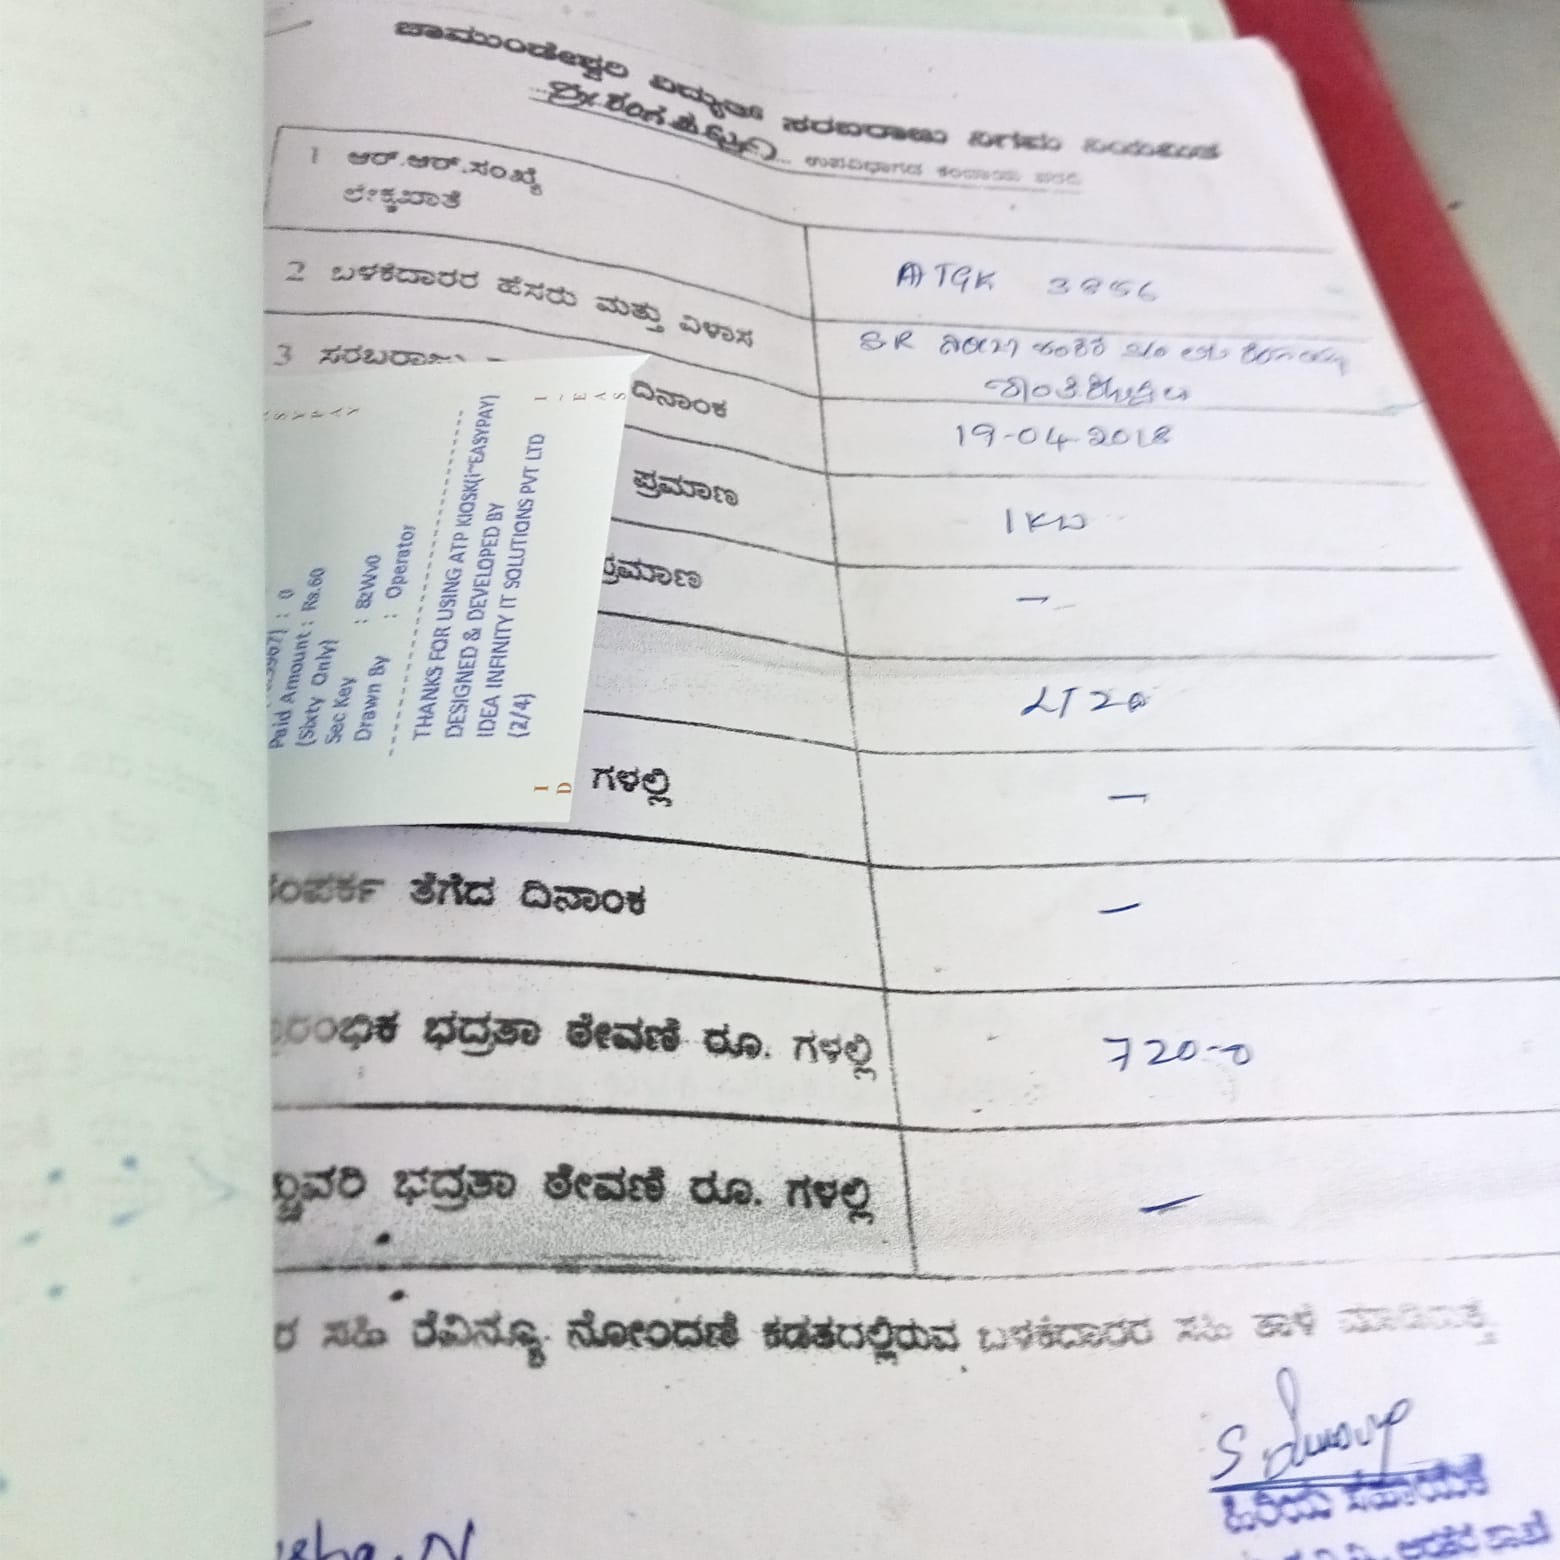 ಚಾಮುಂಡೇಶ್ವರಿ ವಿದ್ಯುತ್ ಸರಬರಾಜು ನಿಗಮ ನಿಯಮಿತ
ಉಪವಿಭಾಗದ ಕಂದಾಯ ವರದಿ
1 ಆರ್.ಆರ್.ಸಂಖ್ಯೆ
ಲೆಕ್ಕಖಾತೆ
ATGK 3856
2 ಬಳಕೆದಾರರ ಹೆಸರು ಮತ್ತು ವಿಳಾಸ
SR
3 ಸರಬರಾಜು
ದಿನಾಂಕ
19-04-2018
ಪ್ರಮಾಣ
1KW
ಪ್ರಮಾಣ
–
LT2a
ಗಳಲ್ಲಿ
–
ಸಂಪರ್ಕ ತೆಗೆದ ದಿನಾಂಕ
–
ರಂಭಿಕ ಭದ್ರತಾ ಠೇವಣಿ ರೂ. ಗಳಲ್ಲಿ
720-0
ಚ್ಚುವರಿ ಭದ್ರತಾ ಠೇವಣಿ ರೂ. ಗಳಲ್ಲಿ
–
ರ ಸಹಿ ರೆವಿನ್ಯೂ ನೋಂದಣಿ ಕಡತದಲ್ಲಿರುವ ಬಳಕೆದಾರರ ಸಹಿ ತಾಳೆ
ಹಿರಿಯ ಸಹಾಯಕ
Paid Amount : Rs.60
(Sixty Only)
Sec Key : 82Wv0
Drawn By : Operator
THANKS FOR USING ATP KIOSK(i~EASYPAY)
DESIGNED & DEVELOPED BY
IDEA INFINITY IT SOLUTIONS PVT LTD
(2/4)